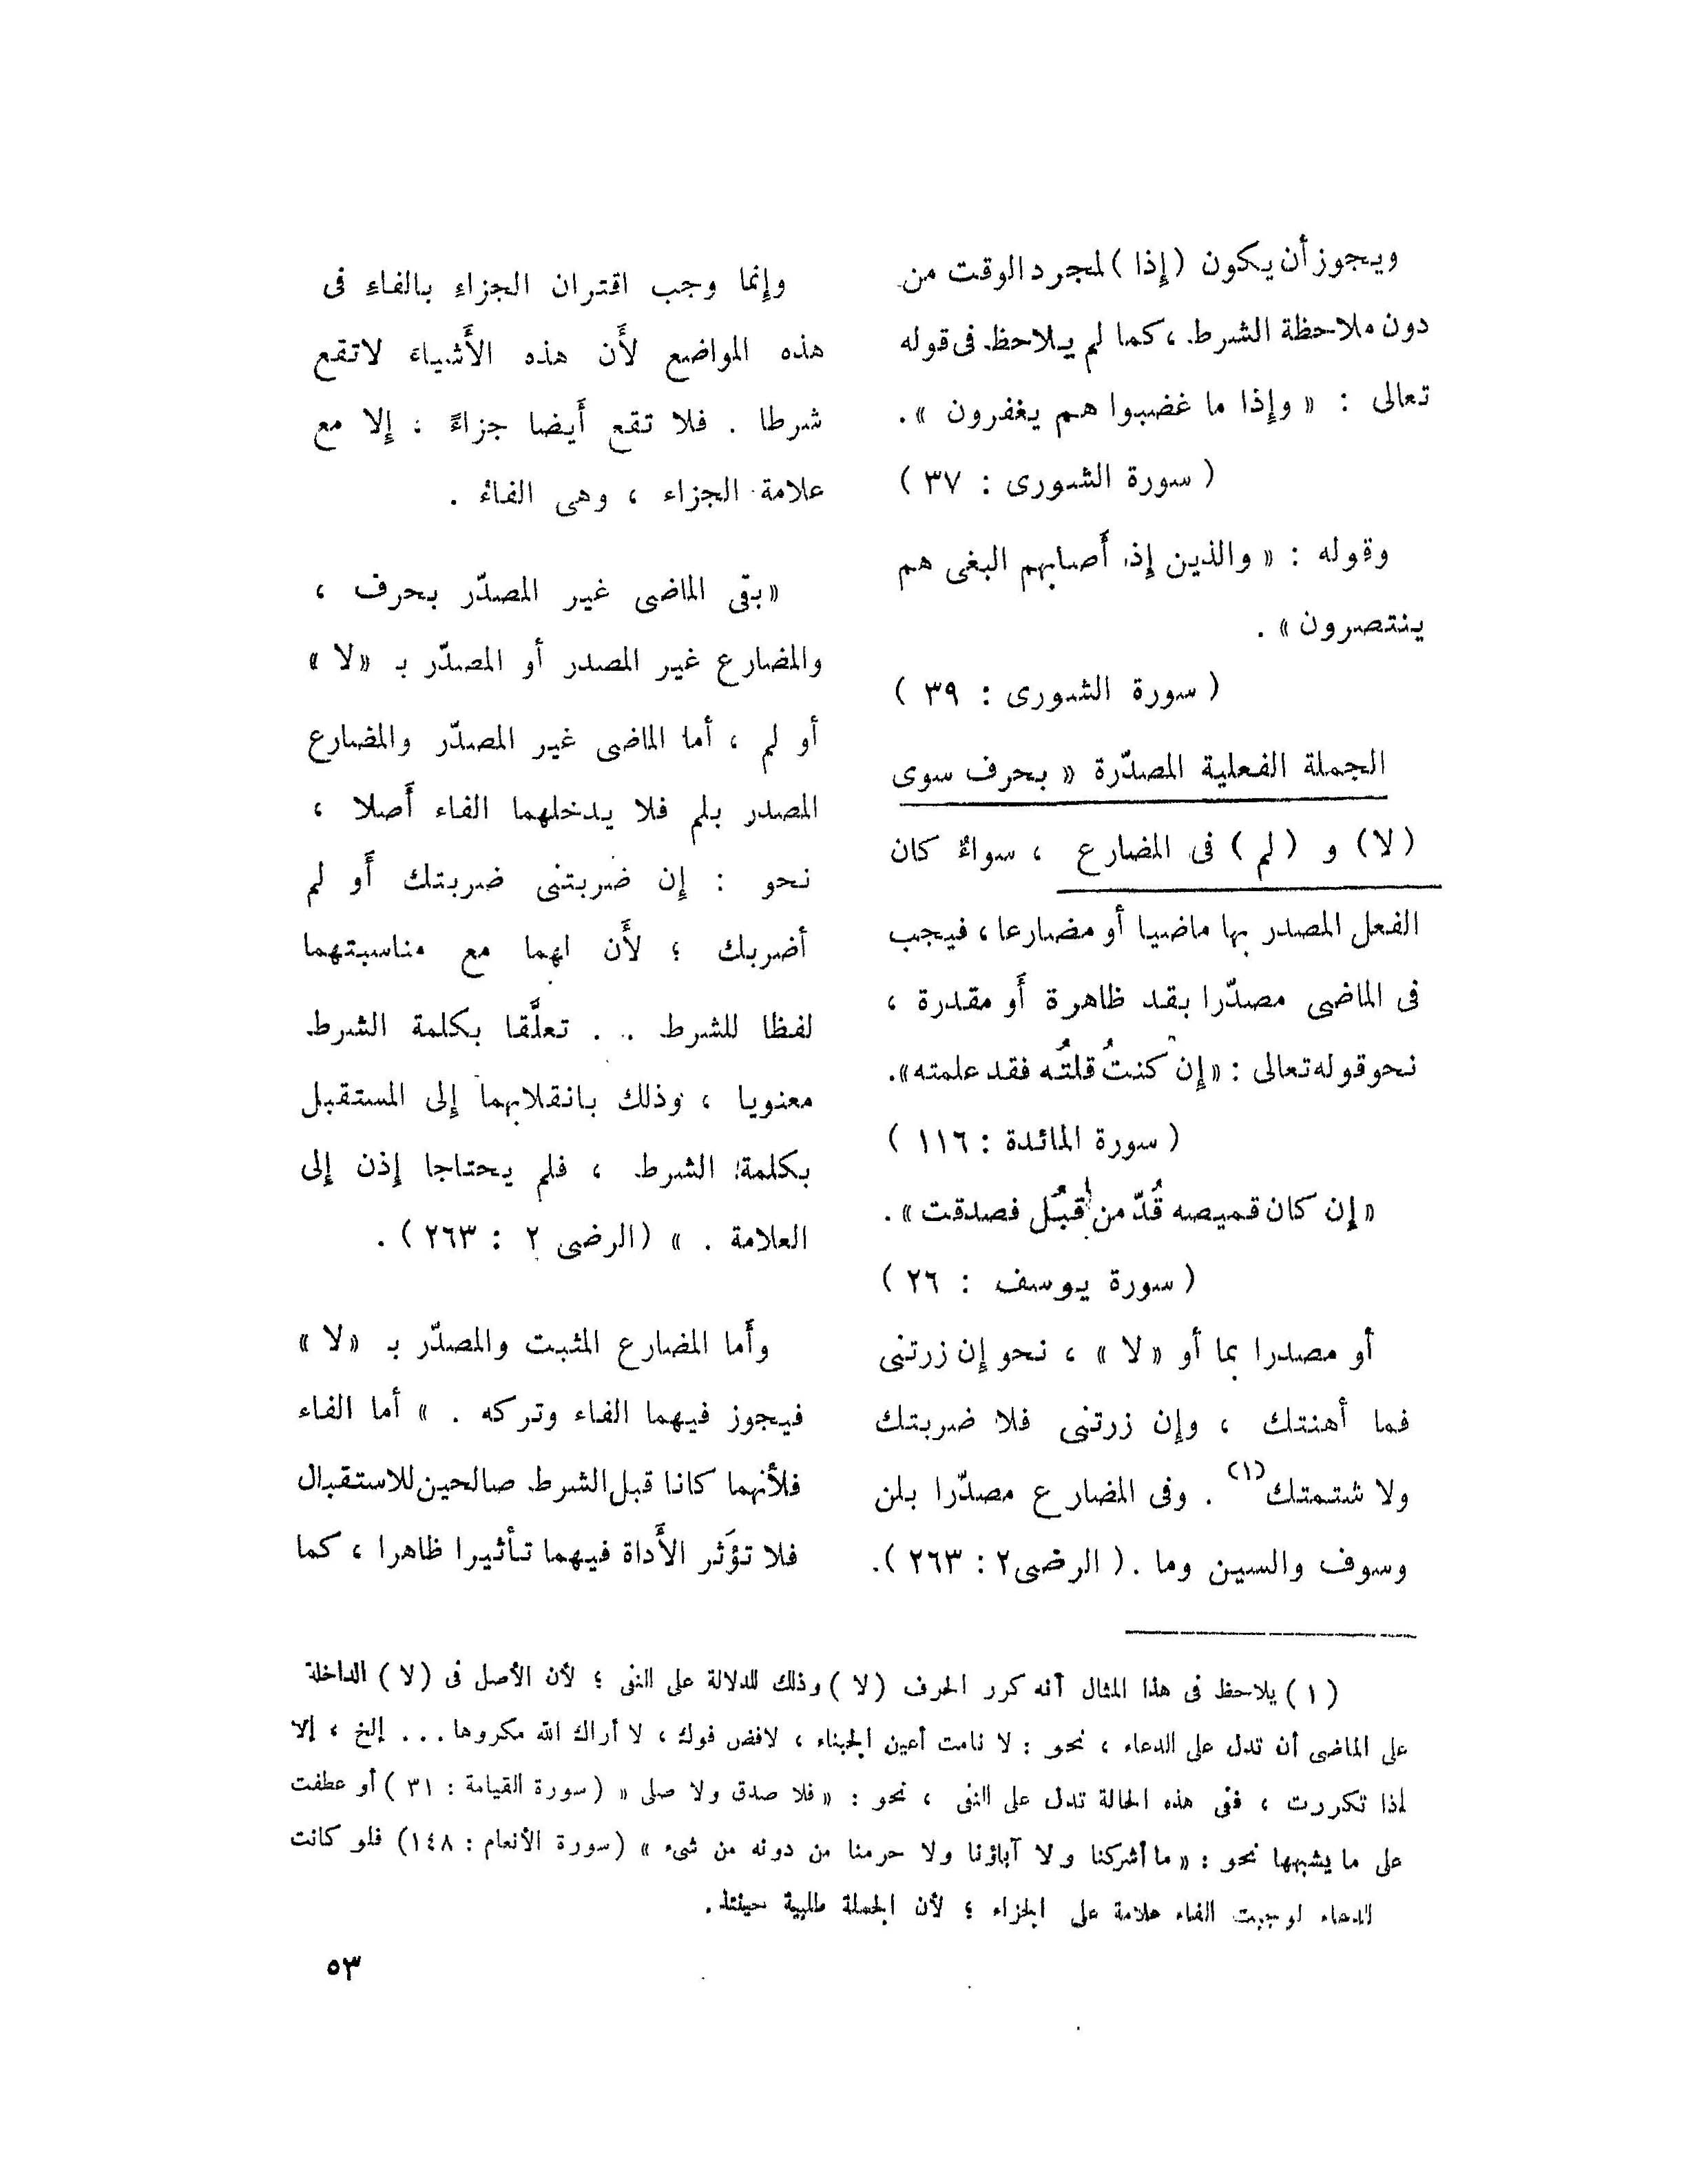 ويجوز أن يكون (إذا) لمجرد الوقت من
دون ملاحظة الشرط ، كما لم يلاحظ فى قوله
تعالى : « وإذا ما غضبوا هم يغفرون » .
( سورة الشورى : ٣٧ )
وقوله : « والذين إذ أصابهم البغى هم
ينتصرون » .
( سورة الشورى : ٣٩ )
الجملة الفعلية المصدّرة « بحرف سوى
(لا) و (لم) فى المضارع ، سواءٌ كان
الفعل المصدر بها ماضيا أو مضارعا ، فيجب
فى الماضى مصدّرا بقد ظاهرة أَو مقدرة ،
نحو قوله تعالى : «إن كنتُ قلتُه فقد علمته».
( سورة المائدة : ١١٦ )
« إن كان قميصه قُدّ من قبُل فصدقت » .
( سورة يوسف : ٢٦ )
أو مصدرا بما أو « لا » ، نحو إن زرتنى
فما أهنتك ، وإن زرتنى فلا ضربتك
ولا شتمتك (١) . وفى المضارع مصدّرا بلن
وسوف والسين وما . ( الرضى ٢ : ٢٦٣ ).
وإنما وجب اقتران الجزاءِ بالفاءِ فى
هذه المواضع لأَن هذه الأَشياءَ لاتقع
شرطا . فلا تقع أَيضا جزاءً ؛ إلا مع
علامة الجزاء ، وهى الفاءُ .
« بقى الماضى غير المصدّر بحرف ،
والمضارع غير المصدر أو المصدّر بـ «لا »
أو لم ، أما الماضى غير المصدّر والمضارع
المصدر بلم فلا يدخلهما الفاء أَصلا ،
نحو : إن ضربتنى ضربتك أَو لم
أضربك ؛ لأَن لهما مع مناسبتهما
لفظا للشرط . . تعلَّقا بكلمة الشرط
معنويا ، وذلك بانقلابهما إلى المستقبل
بكلمة الشرط ، فلم يحتاجا إذن إلى
العلامة . » (الرضى ٢ : ٢٦٣ ) .
وأَما المضارع المثبت والمصدّر بـ «لا »
فيجوز فيهما الفاء وتركه . » أما الفاء
فلأنهما كانا قبل الشرط صالحين للاستقبال
فلا تؤَثر الأَداة فيهما تأثيرا ظاهرا ، كما
(١) يلاحظ فى هذا المثال أنه كرر الحرف (لا) وذلك للدلالة على النفى ؛ لأن الأصل فى (لا) الداخلة
على الماضى أن تدل على الدعاء ، نحو : لا نامت أعين الجبناء ، لافض فوك ، لا أراك الله مكروها... إلخ ، إلا
إذا تكررت ، ففى هذه الحالة تدل على النفى ، نحو : « فلا صدق ولا صلى » (سورة القيامة : ٣١) أو عطفت
على ما يشبهها نحو : « ما أشركنا ولا آباؤنا ولا حرمنا من دونه من شىء » (سورة الأنعام : ١٤٨) فلو كانت
للدعاء لوجبت الفاء علامة على الجزاء ؛ لأن الجملة طلبية حينئذ.
٥٣